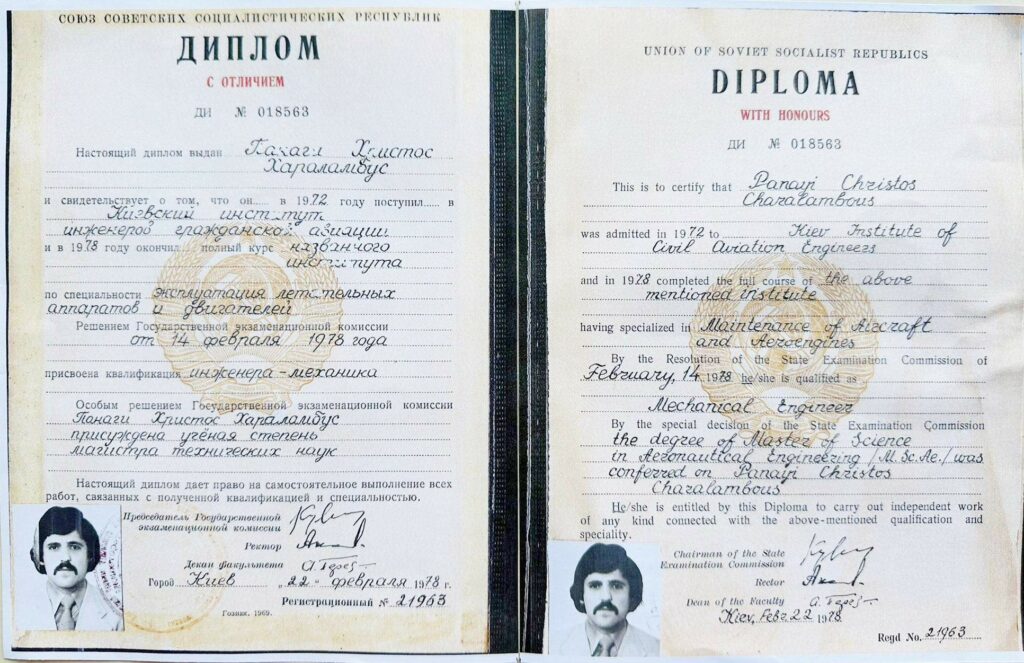 СОЮЗ СОВЕТСКИХ СОЦИАЛИСТИЧЕСКИХ РЕСПУБЛИК
ДИПЛОМ
С ОТЛИЧИЕМ
ДИ № 018563
Настоящий диплом выдан Панаги Христос
Хараламбус
и свидетельствует о том, что он в 1972 году поступил в
Киевский институт
инженеров гражданской авиации
и в 1978 году окончил полный курс названного
института
по специальности эксплуатация летательных
аппаратов и двигателей
Решением Государственной экзаменационной комиссии
от 14 февраля 1978 года
присвоена квалификация инженера-механика
Особым решением Государственной экзаменационной комиссии
Панаги Христос Хараламбус
присуждена учёная степень
магистра технических наук
Настоящий диплом дает право на самостоятельное выполнение всех
работ, связанных с полученной квалификацией и специальностью.
Председатель Государственной
экзаменационной комиссии
Ректор
Декан факультета
Город Киев „22" февраля 1978 г.
Регистрационный № 21963
Гознак. 1969.
UNION OF SOVIET SOCIALIST REPUBLICS
DIPLOMA
WITH HONOURS
ДИ № 018563
This is to certify that Panayi Christos
Charalambous
was admitted in 1972 to Kiev Institute of
Civil Aviation Engineers
and in 1978 completed the full course of the above
mentioned institute
having specialized in Maintenance of Aircraft
and Aeroengines
By the Resolution of the State Examination Commission of
February, 14 1978 he/she is qualified as
Mechanical Engineer
By the special decision of the State Examination Commission
the degree of Master of Science
in Aeronautical Engineering /M.Sc.Ae./ was
conferred on Panayi Christos
Charalambous
He/she is entitled by this Diploma to carry out independent work
of any kind connected with the above-mentioned qualification and
speciality.
Chairman of the State
Examination Commission
Rector
Dean of the Faculty
Kiev, Febr 22 1978
Regd No. 21963